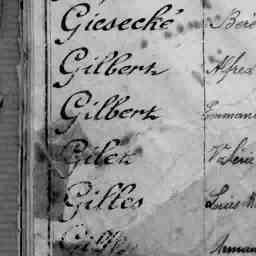 Giesecké Ber
Gilbert Alfred
Gilbert Emman
Gilen Valérie
Gilles Louis
Gill Arman